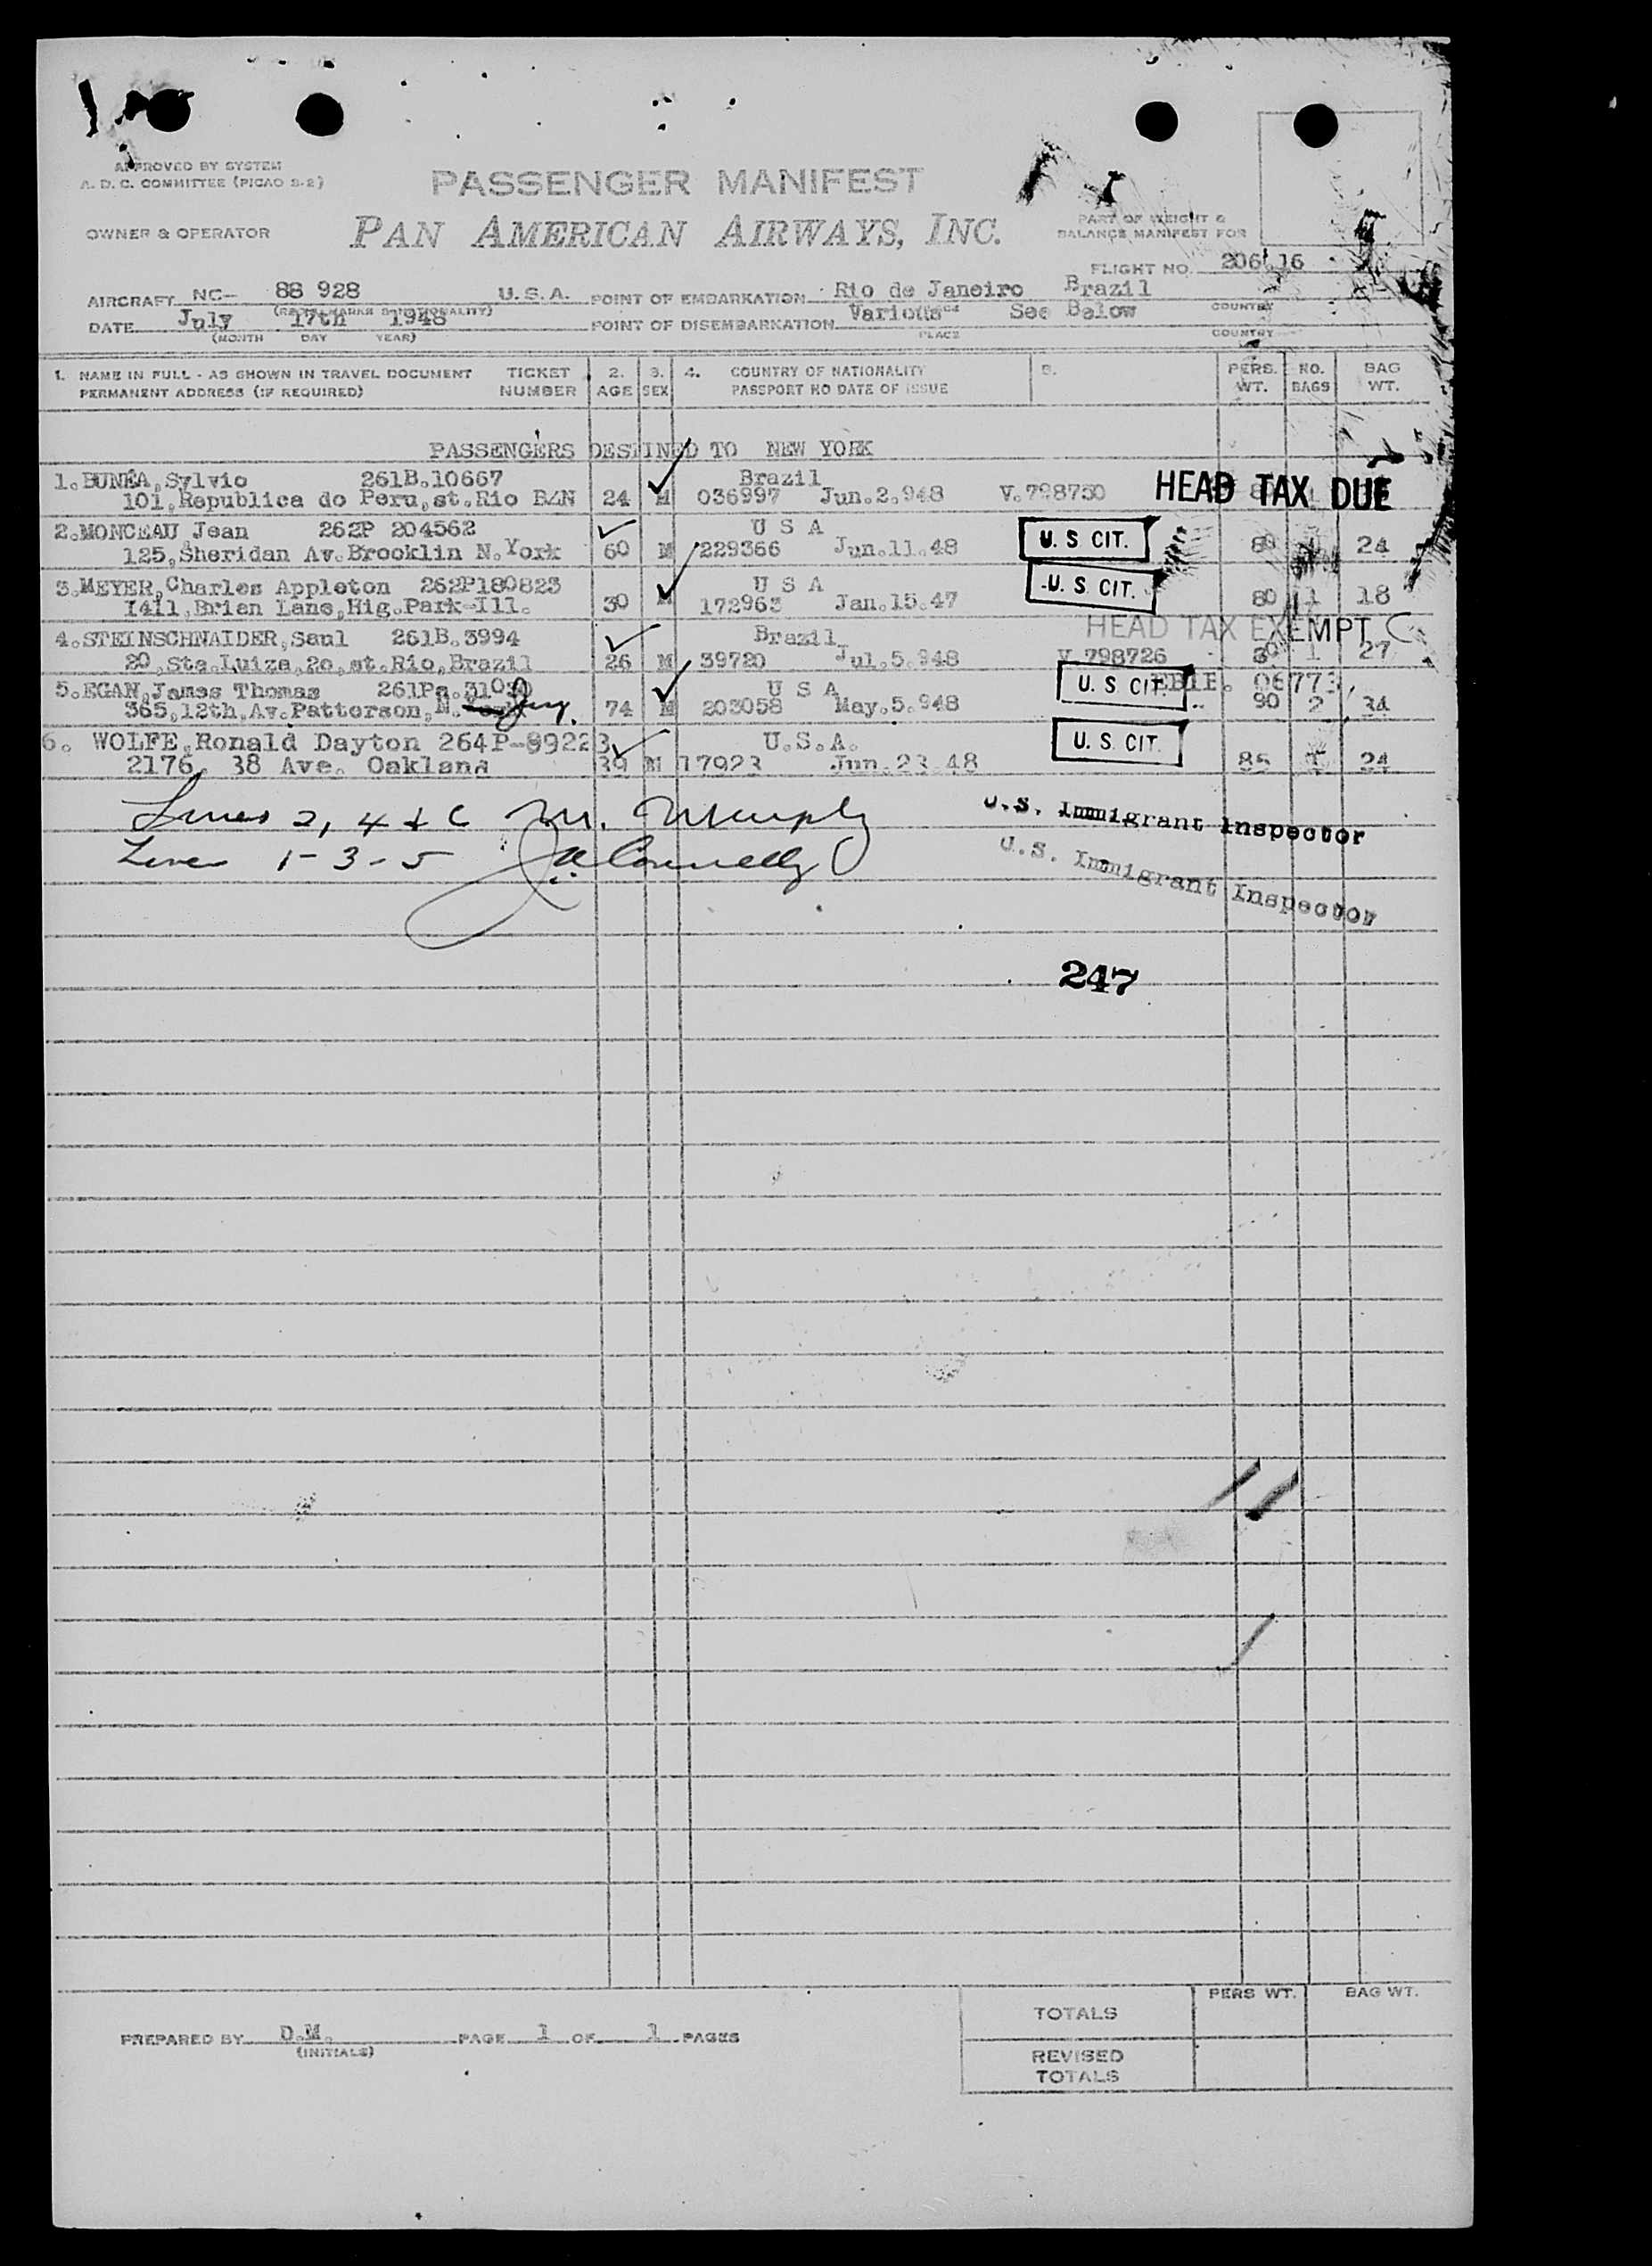 APPROVED BY SYSTEM
A. D. C. COMMITTEE (PICAO S-2)
PASSENGER MANIFEST
OWNER & OPERATOR
PAN AMERICAN AIRWAYS, INC.
PART OF WEIGHT &
BALANCE MANIFEST FOR
FLIGHT NO. 206 16
AIRCRAFT NC- 88 928 U.S.A. POINT OF EMBARKATION Rio de Janeiro Brazil
(REGIS. MARKS & NATIONALITY) COUNTRY
DATE July 17th 1948 POINT OF DISEMBARKATION Various See Below
(MONTH DAY YEAR) PLACE COUNTRY
1. NAME IN FULL - AS SHOWN IN TRAVEL DOCUMENT TICKET 2. 3. 4. COUNTRY OF NATIONALITY 5. PERS. NO. BAG
PERMANENT ADDRESS (IF REQUIRED) NUMBER AGE SEX PASSPORT NO DATE OF ISSUE WT. BAGS WT.
PASSENGERS DESTINED TO NEW YORK
1.BUNEA,Sylvio 261B.10667 Brazil
101,Republica do Peru,st.Rio BZN 24 M 036997 Jun.2.948 V.798730 HEAD TAX DUE
2.MONCEAU Jean 262P 204562 U S A
125,Sheridan Av.Brooklin N.York 60 M 229366 Jun.11.48 U. S. CIT. 80 1 24
3.MEYER,Charles Appleton 262P180823 U S A
1411,Brian Lane,Hig.Park-Ill. 30 M 172963 Jan.15.47 U. S. CIT. 80 1 18
4.STEINSCHNAIDER,Saul 261B.3994 Brazil HEAD TAX EXEMPT C
20,Sta.Luiza,20,st.Rio,Brazil 26 M 39720 Jul.5.948 V 798726 1 27
5.EGAN,James Thomas 261Pa. U S A U. S. CIT. 06773
365,12th,Av.Patterson,N. Jery. 74 M 203058 May.5.948 90 2 34
6. WOLFE,Ronald Dayton 264P-89223 U.S.A. U. S. CIT.
2176, 38 Ave. Oakland 39 M 17923 Jun.23.48 85 1 24
Lines 2, 4 & 6 M. Murphy U.S. Immigrant Inspector
Lines 1-3-5 J.A. Connelly U.S. Immigrant Inspector
247
PERS WT. BAG WT.
TOTALS
PREPARED BY D.M. PAGE 1 OF 1 PAGES
(INITIALS)
REVISED
TOTALS